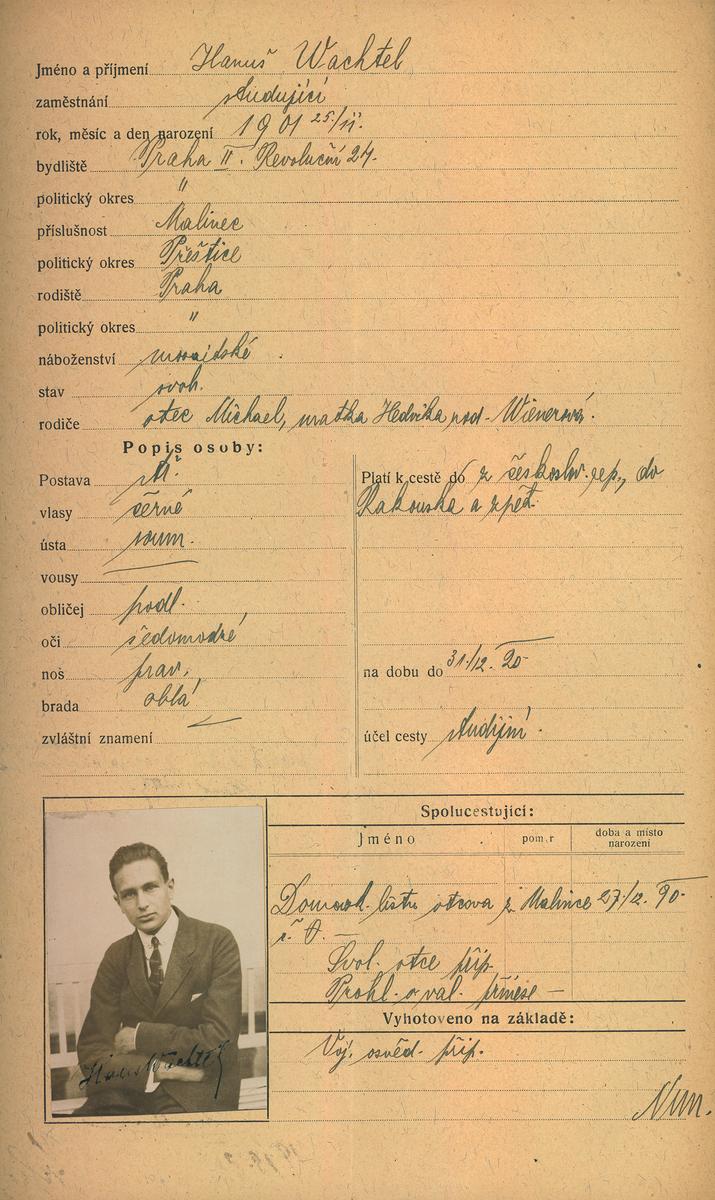 Jméno a příjmení Hanuš Wachtel
zaměstnání studující
rok, měsíc a den narození 1901 25/11.
bydliště Praha II. Revoluční 24.
politický okres "
příslušnost Malinec
politický okres Přeštice
rodiště Praha
politický okres "
náboženství mosaidské
stav svob.
rodiče otec Michael, matka Hedvika rod. Wienerová.
Popis osoby:
Postava stř.
vlasy černé
ústa soum.
vousy —
obličej podl.
oči šedomodré
nos prav.
brada oblá
zvláštní znamení —
Platí k cestě do z českoslov. rep., do
Rakouska a zpět.
na dobu do 31./12. 20
účel cesty studijní.
Spolucestující:
Jméno poměr doba a místo narození
Domovsk. listu otcova z Malince 27/12. 90
č. 0. —
Svol. otce přip.
Prohl. o val. přinese —
Vyhotoveno na základě:
Voj. osvěd. přip.
Hanuš Wachtel